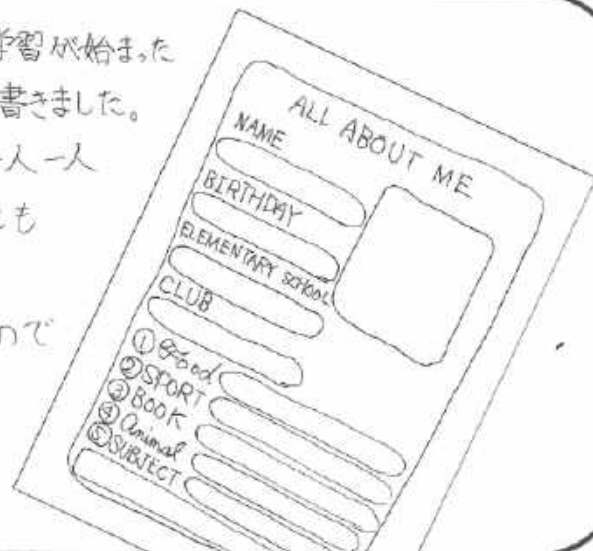 学習が始まった
書きました。
一人一人
も
ので
ALL ABOUT ME
NAME
BIRTHDAY
ELEMENTARY SCHOOL
CLUB
① Food
② SPORT
③ BOOK
④ Animal
⑤ SUBJECT